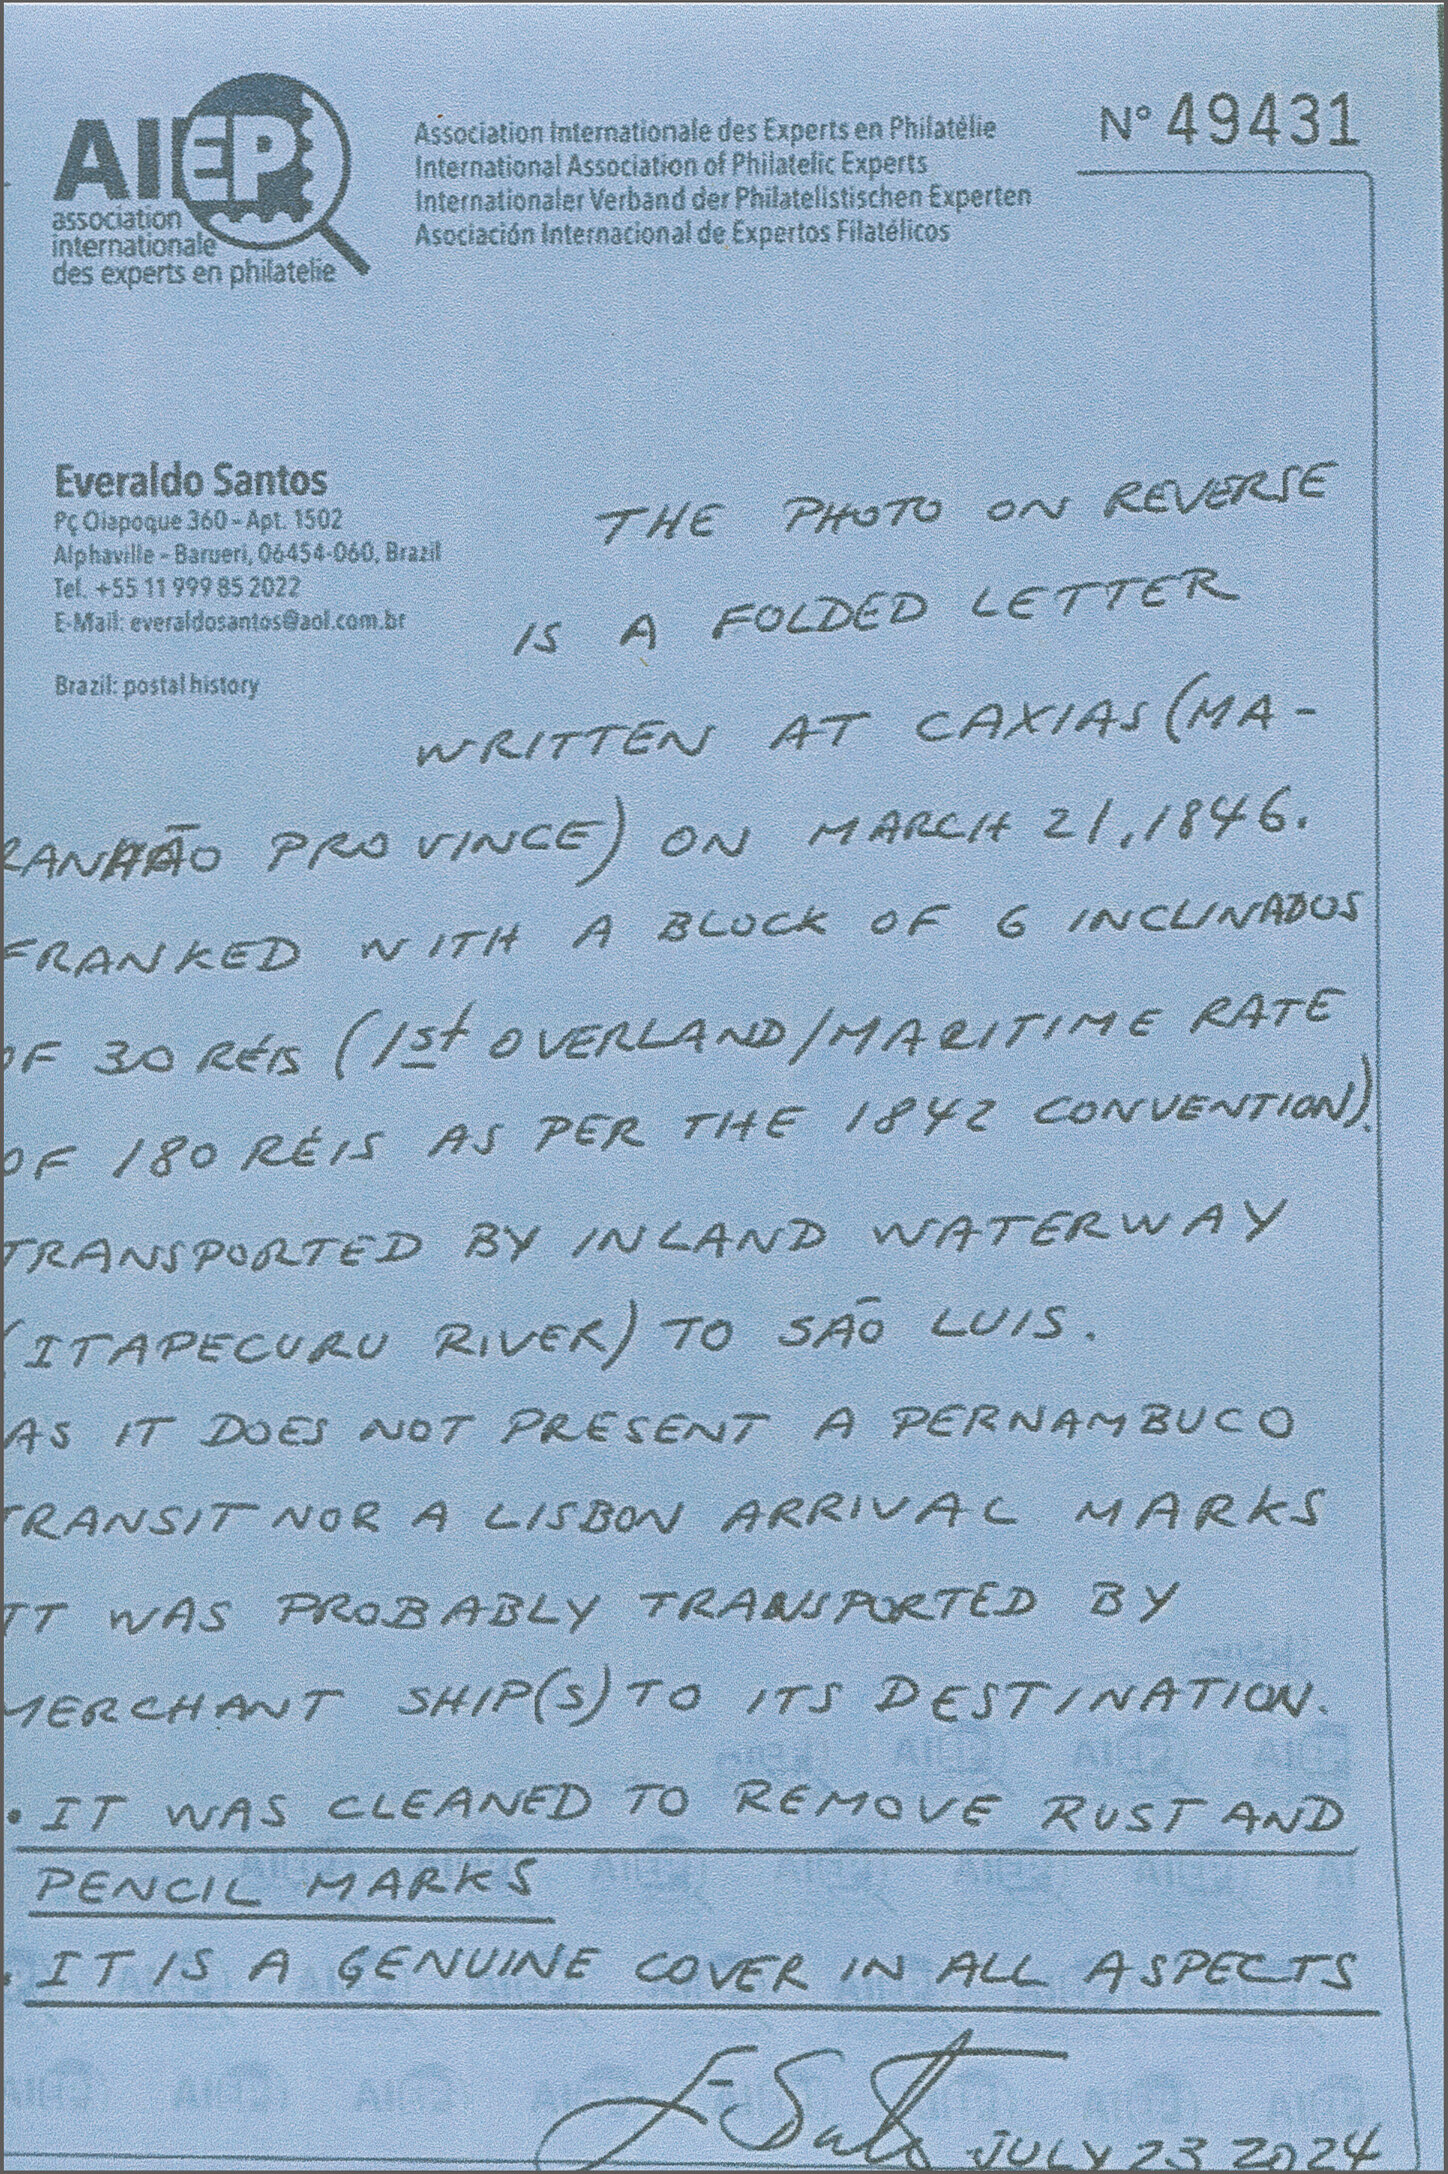 AIEP
association
internationale
des experts en philatelie
Association Internationale des Experts en Philatélie
International Association of Philatelic Experts
Internationaler Verband der Philatelistischen Experten
Asociación Internacional de Expertos Filatélicos
N° 49431
Everaldo Santos
Pç Oiapoque 360 - Apt. 1502
Alphaville - Barueri, 06454-060, Brazil
Tel. +55 11 999 85 2022
E-Mail: everaldosantos@aol.com.br
Brazil: postal history
THE PHOTO ON REVERSE
IS A FOLDED LETTER
WRITTEN AT CAXIAS (MA-
RANHÃO PROVINCE) ON MARCH 21, 1846.
FRANKED WITH A BLOCK OF 6 INCLINADOS
OF 30 RÉIS (1st OVERLAND/MARITIME RATE
OF 180 RÉIS AS PER THE 1842 CONVENTION).
TRANSPORTED BY INLAND WATERWAY
(ITAPECURU RIVER) TO SÃO LUIS.
AS IT DOES NOT PRESENT A PERNAMBUCO
TRANSIT NOR A LISBON ARRIVAL MARKS
IT WAS PROBABLY TRANSPORTED BY
MERCHANT SHIP(S) TO ITS DESTINATION.
• IT WAS CLEANED TO REMOVE RUST AND
PENCIL MARKS
• IT IS A GENUINE COVER IN ALL ASPECTS
JULY 23 2024